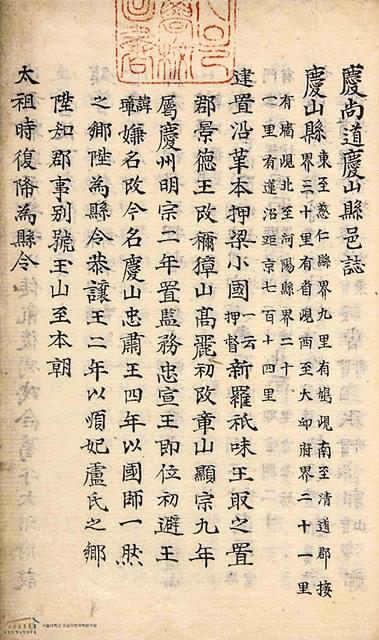 慶尚道慶山縣邑誌
慶山縣東至慈仁縣界九里有鳩峴南至清道郡接
界三十里有首峴西至大邱府界二十一里
有墻峴北至河陽縣界二十
二里有蓮沼距京七百十四里
建置沿革本押梁小國一云押督新羅祇味王取之置
郡景德王改稱獐山高麗初改章山顯宗九年
屬慶州明宗二年置監務忠宣王即位初避王
諱璋嫌名改今名慶山忠肅王四年以國師一然
之鄉陞為縣令恭讓王二年以順妃盧氏之鄉
陞知郡事别號玉山至本朝
太祖時復降為縣令
서울대학교 규장각한국학연구원